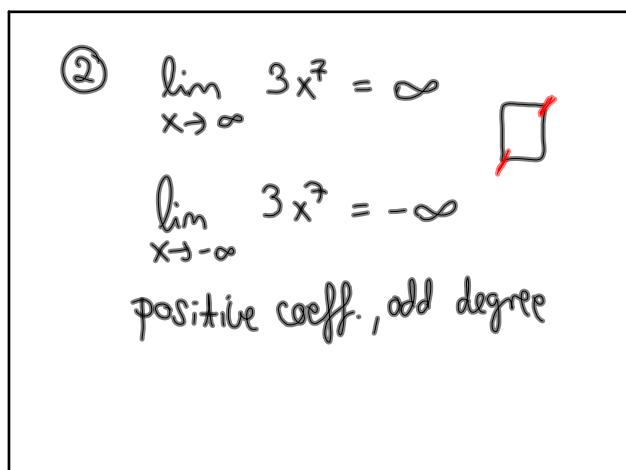 ② lim 3x⁷ = ∞
x→∞
lim 3x⁷ = -∞
x→-∞
positive coeff., odd degree